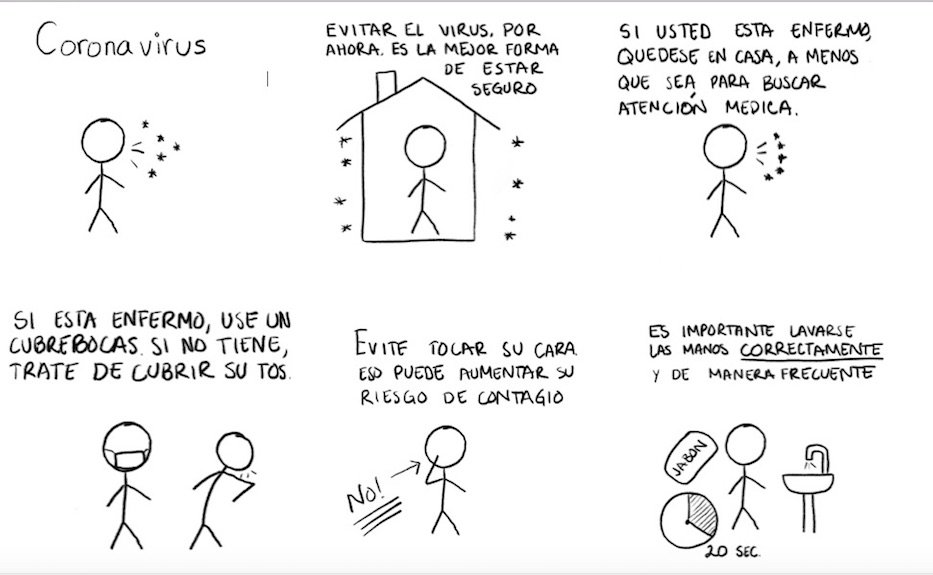 Coronavirus
EVITAR EL VIRUS, POR
AHORA, ES LA MEJOR FORMA
DE ESTAR
SEGURO
SI USTED ESTA ENFERMO,
QUEDESE EN CASA, A MENOS
QUE SEA PARA BUSCAR
ATENCIÓN MEDICA.
SI ESTA ENFERMO, USE UN
CUBREBOCAS. SI NO TIENE,
TRATE DE CUBRIR SU TOS.
EVITE TOCAR SU CARA.
ESO PUEDE AUMENTAR SU
RIESGO DE CONTAGIO
No!
ES IMPORTANTE LAVARSE
LAS MANOS CORRECTAMENTE
Y DE MANERA FRECUENTE
JABON
20 SEC.